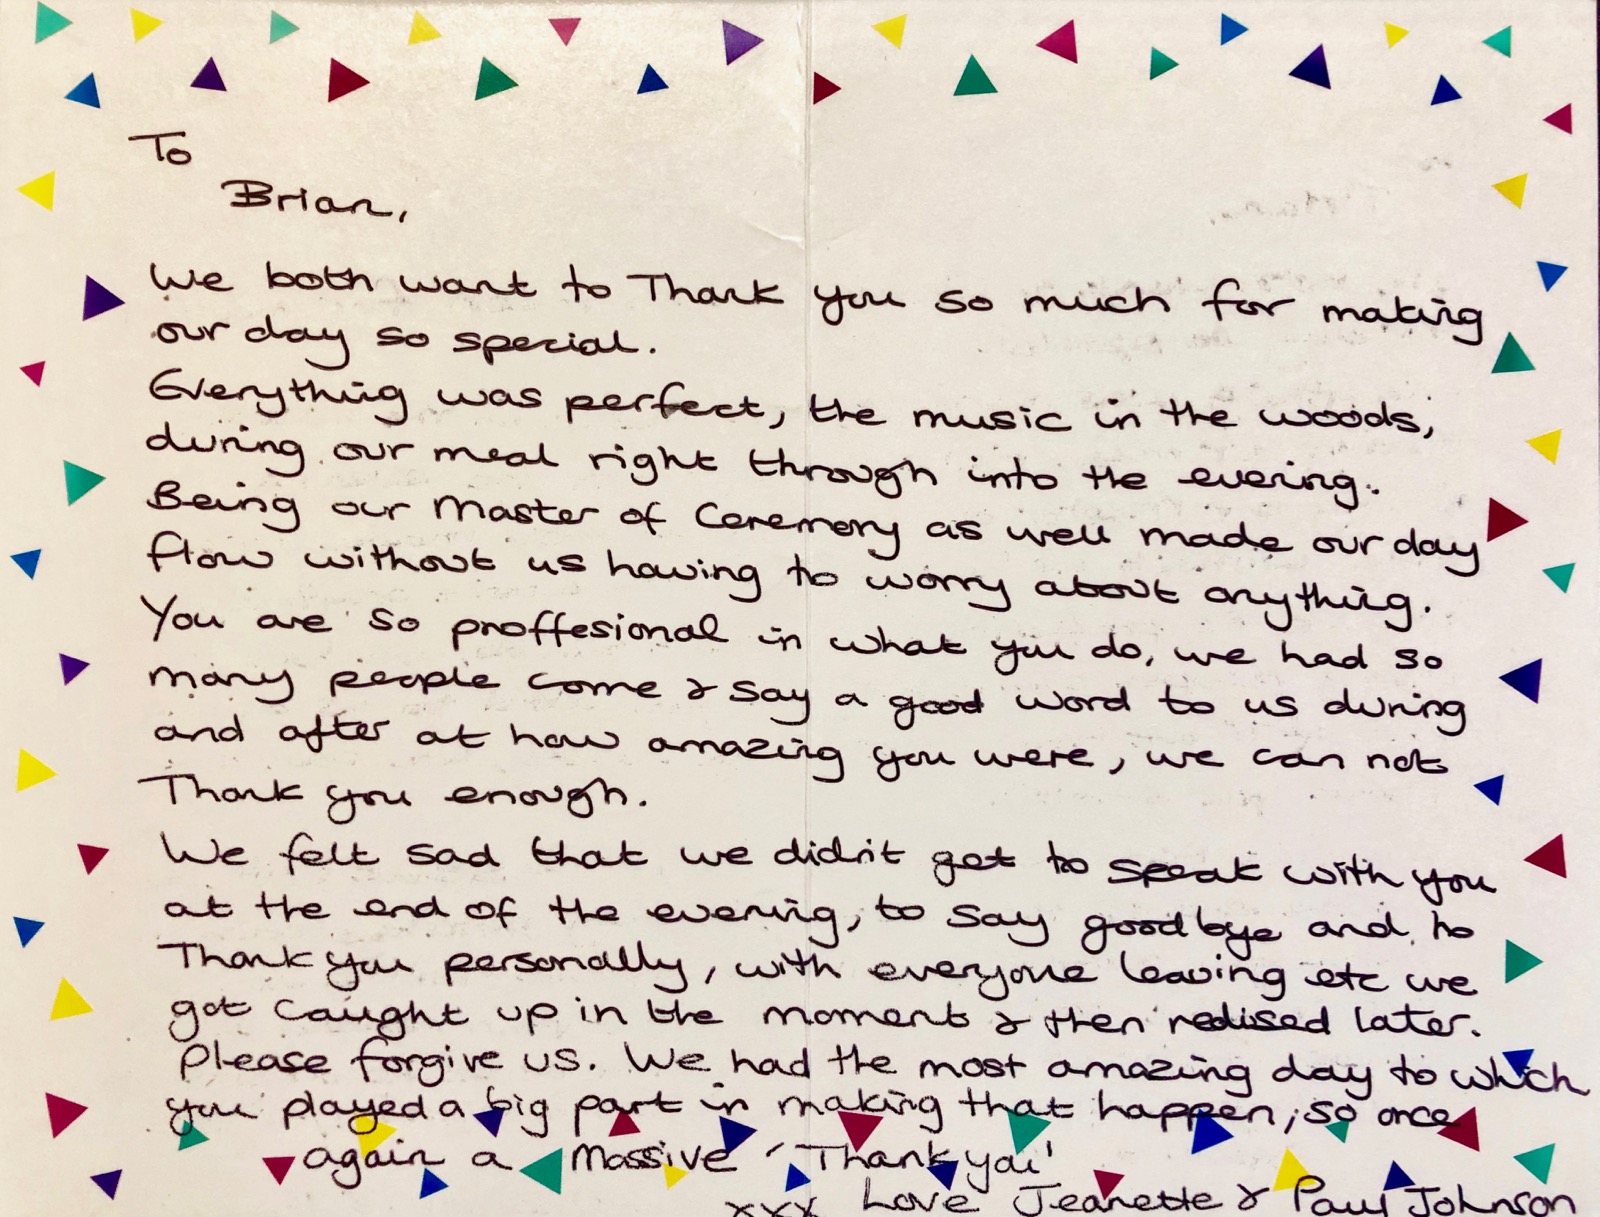 To
Brian,
We both want to Thank you so much for making
our day so special.
Everything was perfect, the music in the woods,
during our meal right through into the evening.
Being our Master of Ceremony as well made our day
flow without us having to worry about anything.
You are so proffesional in what you do, we had so
many people come & say a good word to us during
and after at how amazing you were, we can not
Thank you enough.
We felt sad that we didn't get to speak with you
at the end of the evening, to say goodbye and to
Thank you personally, with everyone leaving etc we
got caught up in the moment & then realised later.
Please forgive us. We had the most amazing day to which
you played a big part in making that happen, so once
again a Massive 'Thank you'
xxx Love Jeanette & Paul Johnson